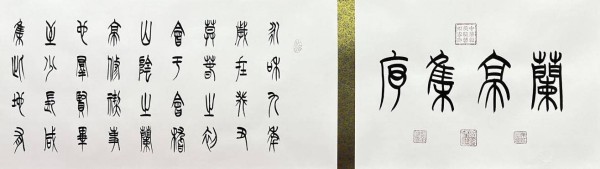 蘭亭集序
永和九年
歲在癸丑
莫春之初
會于會稽
山陰之蘭
亭修禊事
也羣賢畢
至少長咸
集此地有